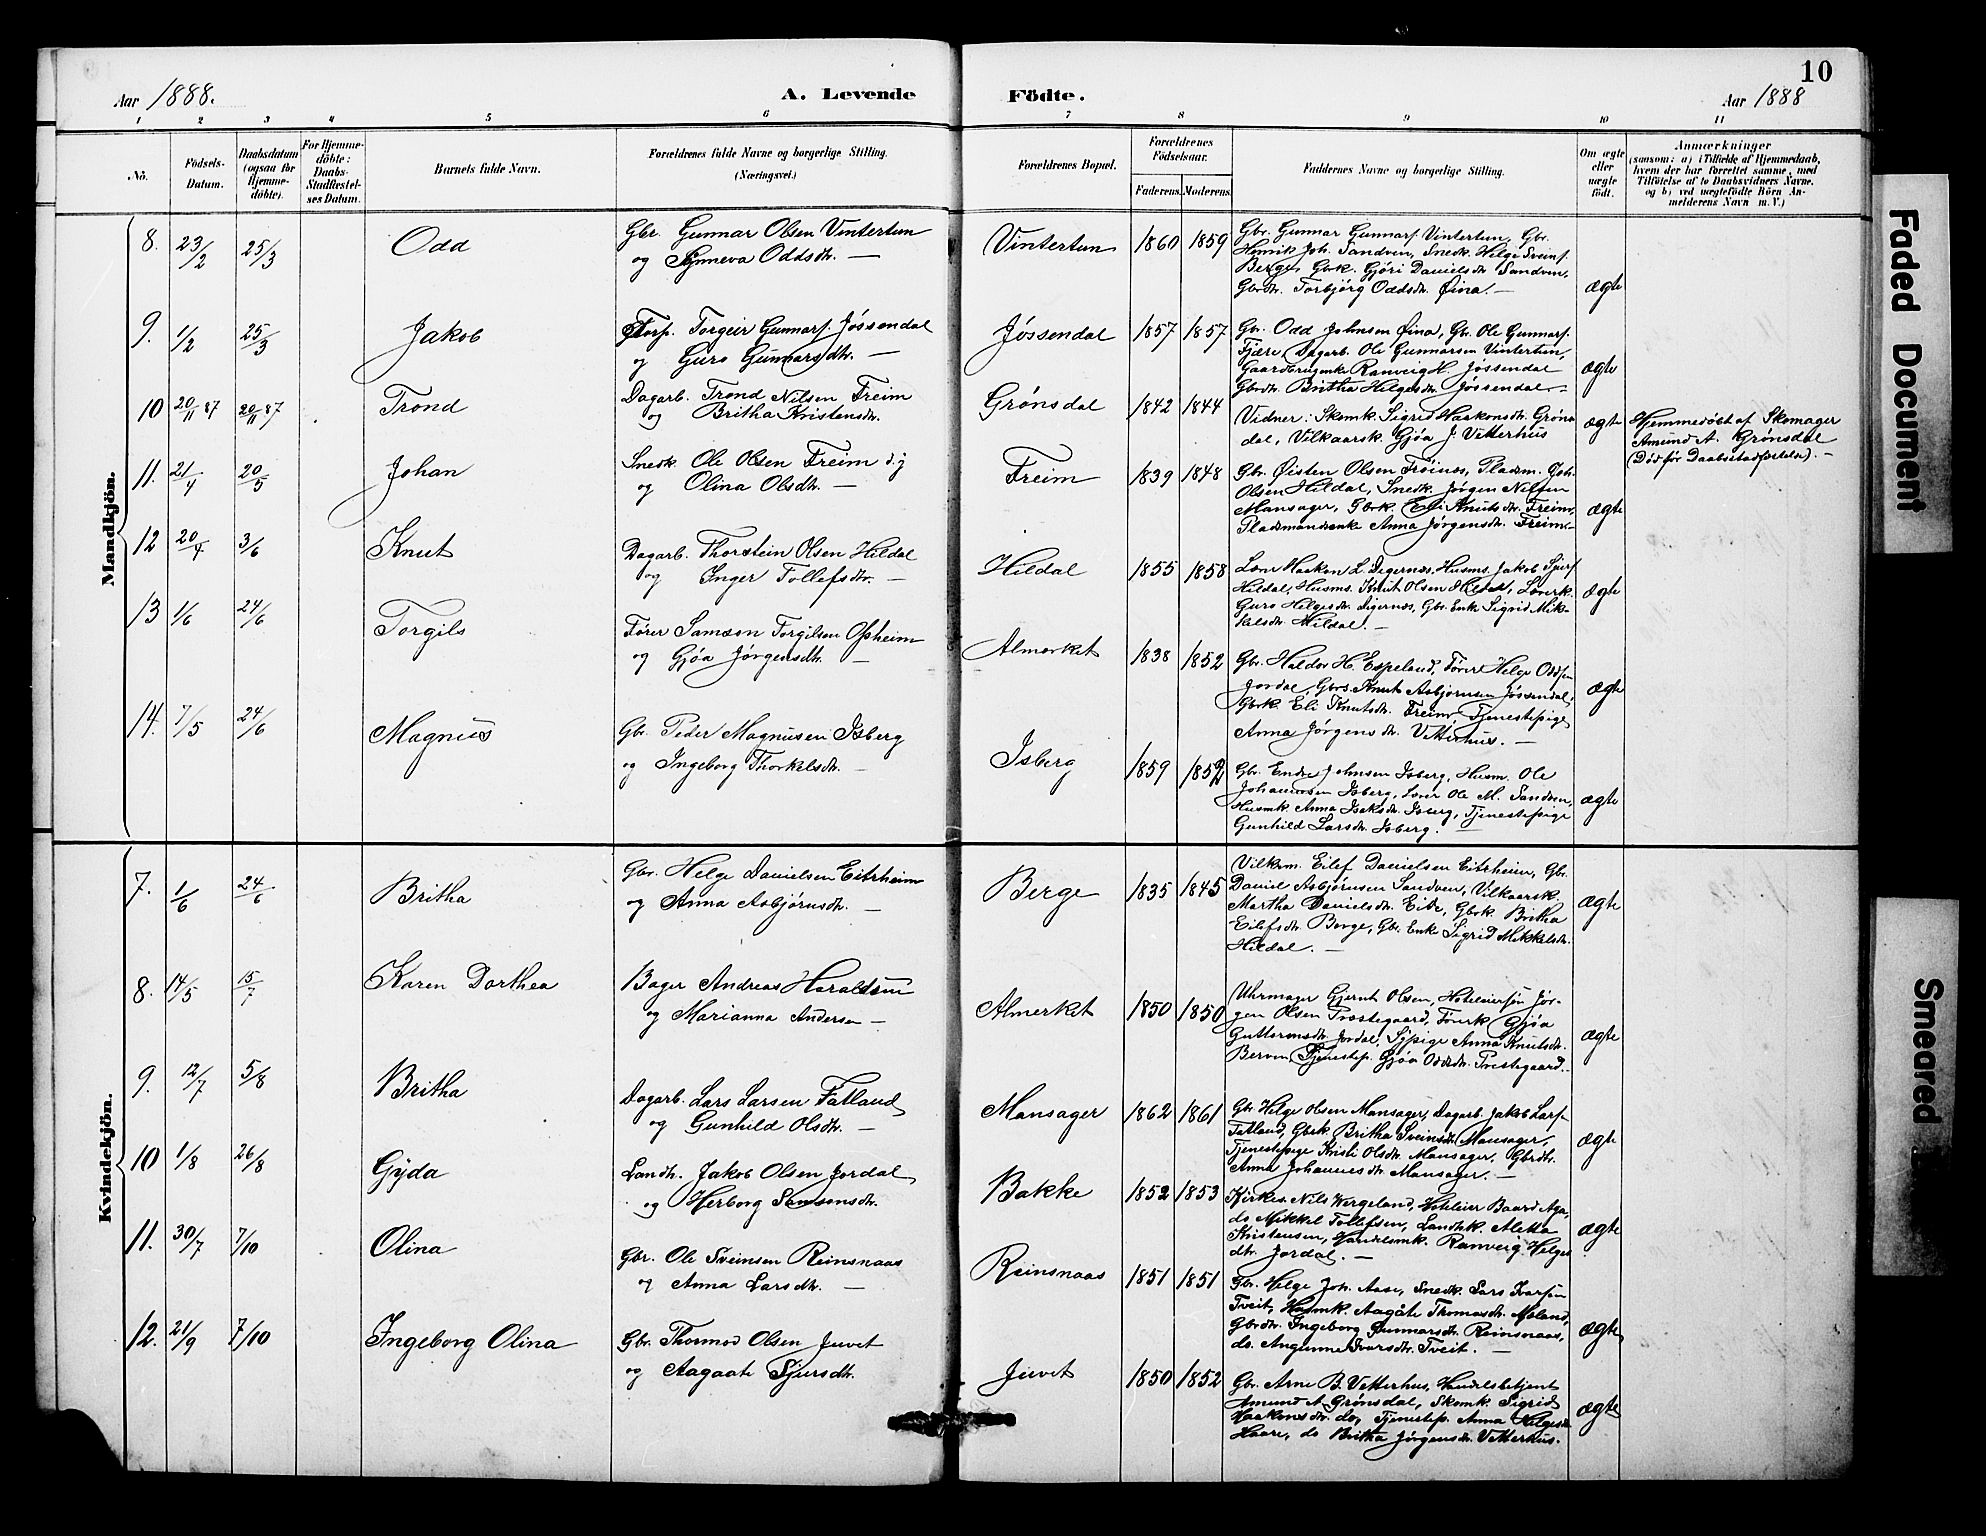 Aar 1888.
A. Levende
Födte.
10
Aar 1888
1 2 3 4 5 6 7 8 9 10 11
No.
Födsels-
Datum.
Daabsdatum
(ogsaa for
Hjemme-
döbte).
For Hjemme-
döbte:
Daabs-
Stadfæstel-
ses Datum.
Barnets fulde Navn.
Forældrenes fulde Navne og borgerlige Stilling.
(Næringsvei.)
Forældrenes Bopæl.
Forældrenes
Födselsaar.
Faderens. Moderens.
Faddernes Navne og borgerlige Stilling.
Om ægte
eller
uægte
födt.
Anmærkninger
(saasom: a) i Tilfælde af Hjemmedaab,
hvem der har forrettet samme, med
Tilföielse af to Daabsvidners Navne.
og b) ved uægtefödte Börn An-
melderens Navn m. V.)
Mandkjön.
8. 23/2 25/3 Odd
Gbr. Gunnar Olsen Vintertun
og Synneva Oddsdtr. —
Vintertun 1860 1859
Gbr. Gunnar Gunnarss. Vintertun, Gbr.
Henrik Joh. Sandven, Snedk. Helge Sveins.
Berge, Gbrk. Gjöri Danielsdtr. Sandven,
Gbrdtr. Torbjörg Oddsdtr. Øina. —
ægte
9. 1/2 25/3 Jakob
Torgeir Gunnars. Jøssendal
og Guro Gunnarsdtr. —
Jøssendal 1857 1857
Gbr. Odd Johnsen Øina, Gbr. Ole Gunnars.
Fjære, Dagarb. Ole Gunnarsen Vintertun,
Gaardbrugenke Ranveig H. Jøssendal
Gbrdtr. Britha Helgesdtr. Jøssendal —
ægte
10 20/11 87 20/11 87 Trond
Dagarb. Trond Nilsen Freim
og Britha Kristensdtr.
Grønsdal 1842 1844
Vidner: Skomk. Sigrid Haakonsdtr. Grøns
dal, Vilkaarsk. Gjøa J. Vetterhus
ægte
Hjemmedøbt af Skomager
Amund A. Grønsdal
(Død før Daabsstadfæstelse). —
11. 21/4 20/5 Johan
Snedk. Ole Olsen Freim d.y
og Olina Olsdtr. —
Freim 1839 1848
Gbr. Øisten Olsen Frøinæs, Pladsm. Joh.
Olsen Hildal, Snedk. Jørgen Nilsen
Mansager, Gbrk. Eli Knutsdtr. Freim,
Pladsmandsenke Anna Jørgensdtr. Freim.
ægte
12 20/4 3/6 Knut
Dagarb. Thorstein Olsen Hildal
og Inger Tollefsdtr. —
Hildal 1855 1858
Lærer Haakon L. Digernæs, Husms. Jakob Sjurs.
Hildal, Husms. Knut Olsen Hildal, Lærerk.
Guro Helgesdtr. Digernæs, Gbr. Enke Sigrid Mik-
kelsdtr. Hildal. —
ægte
13 1/6 24/6 Torgils
Fører Samson Torgilsen Opheim
og Gjøa Jørgensdtr. —
Almerket 1838 1852
Gbr. Haldor H. Espeland, Fører Helge Odds.
Jordal, Gbrs. Knut Asbjørnsen Jøssendal,
Gbrk. Eli Knutsdtr. Freim, Tjenestepige
Anna Jørgensdtr. Vetterhus. —
ægte
14. 7/5 24/6 Magnus
Gbr. Peder Magnusen Isberg
og Ingeborg Thorkelsdtr. —
Isberg 1859 1859
Gbr. Endre Johnsen Isberg, Husm. Ole
Johannesen Isberg, Lærer Ole M. Sandven,
Husmk. Anna Isaksdtr. Isberg, Tjenestepige
Gunhild Larsdtr. Isberg. —
ægte
Kvindekjön.
7. 1/6 24/6 Britha
Gbr. Helge Danielsen Eitrheim
og Anna Asbjørnsdtr. —
Berge 1835 1845
Vilksm. Eilef Danielsen Eitrheim, Gbr.
Daniel Asbjørnsen Sandven, Vilkaarsk.
Martha Danielsdtr. Eitr, Gbrk. Britha
Eilefsdtr. Berge, Gbr. Enke Sigrid Mikkelsdtr.
Hildal. —
ægte
8. 14/5 15/7 Karen Dorthea
Bager Andreas Haraldsen
og Marianna Andersen —
Almerket 1850 1850
Uhrmager Gjernt Olsen, Hoteleiersøn Jør-
gen Olsen Præstegaard, Førerk. Gjøa
Guttormsdtr. Jordal, Sypige Anna Knutsdtr.
Berven Tjenestep. Gjøa Oddsdtr. Præstegaard.
ægte
9. 12/7 5/8 Britha
Dagarb. Lars Larsen Fatland
og Gunhild Olsdtr. —
Mansager 1862 1861
Gbr. Helge Olsen Mansager, Dagarb. Jakob Lars.
Fatland, Gbrk. Britha Sveinsdtr. Mansager,
Tjenestepige Kristi Olsdtr. Mansager, Gbrdtr.
Anna Johannesdtr. Mansager. —
ægte
10 1/8 26/8 Gyda
Landh. Jakob Olsen Jordal
og Herborg Samsonsdtr.
Bakke 1852 1853
Kirkes. Nils Vergeland, Hoteleier Baard Aga,
do Mikkel Tollefsen, Landhk. Aletha
Kristensen, Handelsmk. Ranveig Helges
dtr. Jordal. —
ægte
11. 30/7 7/10 Olina
Gbr. Ole Sveinsen Reinsnaas
og Anna Larsdtr. —
Reinsnaas 1851 1851
Gbr. Helge Joh. Aase, Snedk. Lars Ivarsøn
Tveit, Husmk. Aagåte Thomasdtr. Møland,
Gbrdtr. Ingeborg Gunnarsdtr. Reinsnaas,
do. Angunna Ivarsdtr. Tveit. —
ægte
12. 21/9 7/10 Ingeborg Olina
Gbr. Thormod Olsen Juvet
og Aagaate Sjursdtr.
Juvet 1850 1852
Gbr. Arne B. Vetterhus, Handelsbetjent
Amund A. Grønsdal, Skomk. Sigrid
Haakonsdtr. do, Tjenestep. Anna Helgesdtr.
Haare, do Britha Jørgensdtr. Vetterhus.
ægte
Faded Document
Smeared